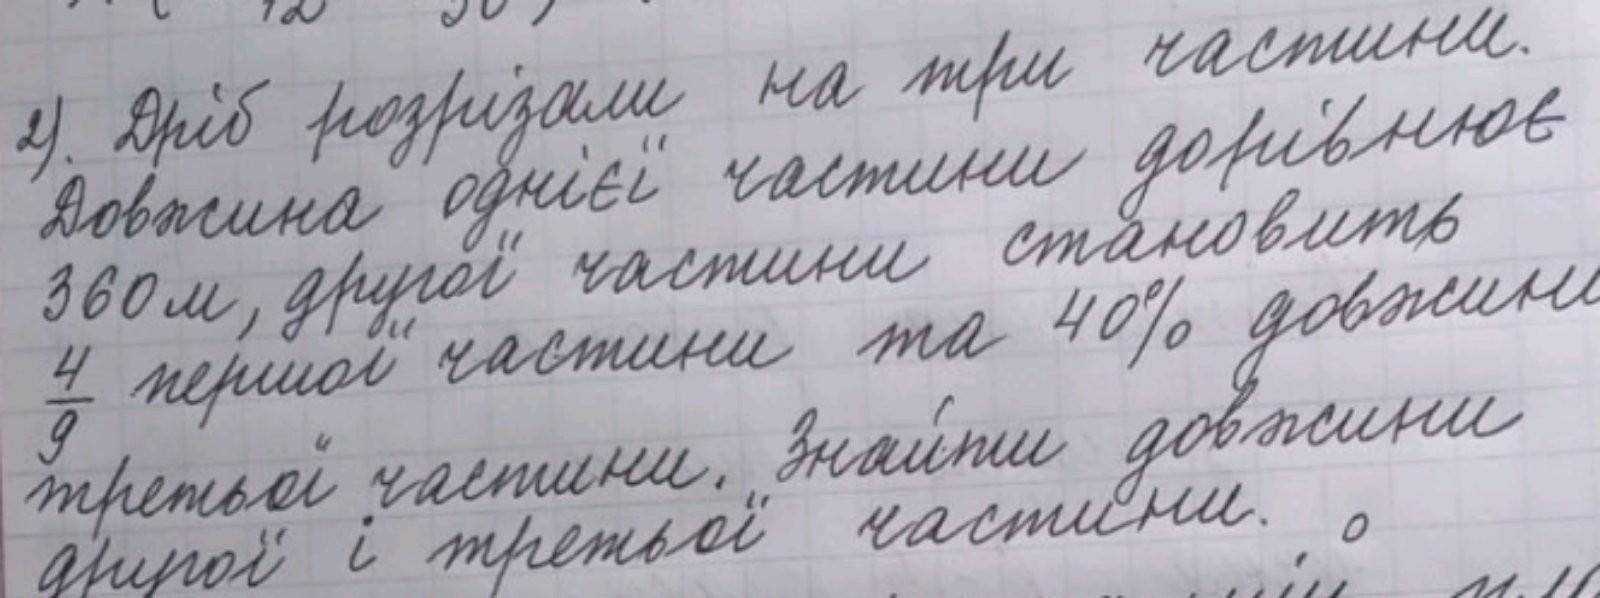 12 30
2). Дріб розрізали на три частини.
Довжина однієї частини дорівнює
360 м, другої частини становить
4/9 першої частини та 40% довжини
третьої частини. Знайти довжини
другої і третьої частини.